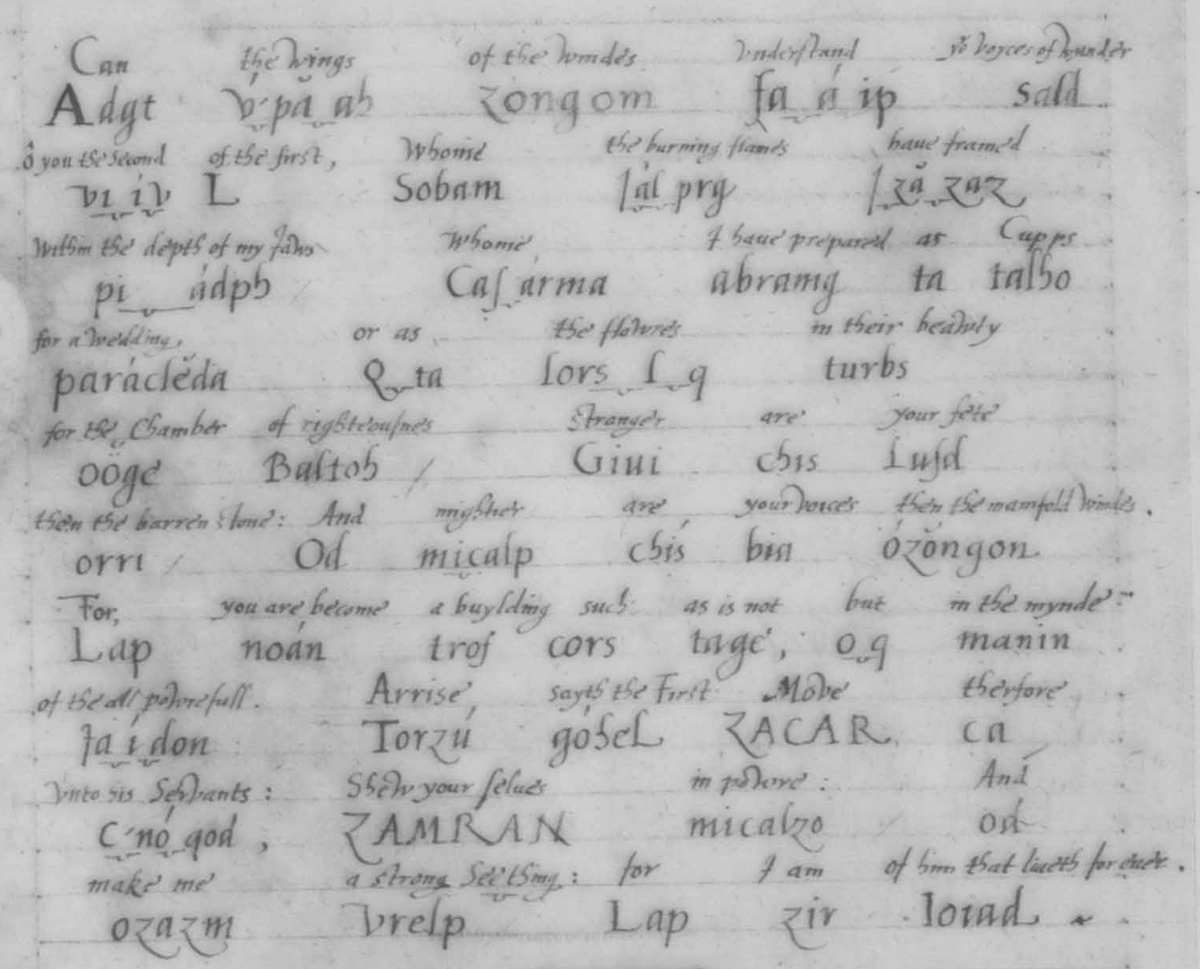 Can the wings of the windes vnderstand yor voyces of wunder
Adgt v́·pă ah zongom fa á ip sald
ô you the second of the first, Whome the burning flames haue framed
vı ív L Sobam Iál prg Iză zaz
within the depth of my Jaws Whome I haue prepared as Cupps
pi ádph Caſ árma abramg ta talho
for a wedding, or as the flowres in their beawty
parácléda Q ta lors l q turbs
for the Chamber of righteousnes Stranger are your fete
oöge Baltoh / Giui chis Luſd
then the barren stone: And mightier are your voices then the manifold windes.
orri / Od micalp chís bia ózŏngon
For, you are become a buylding such as is not but in the mynde
Lap noán trof cors tage, o q manin
of the all powrefull. Arrise, sayth the First Move therfore
Ia í don Torzú góhel ZACAR ca
Vnto his Servants: Shew your selues in powre: And
C·nó qod, ZAMRAN micalzo od
make me a strong Seething: for I am of him that liueth for euer.
ozazm Vrelp Lap zir Ioiad